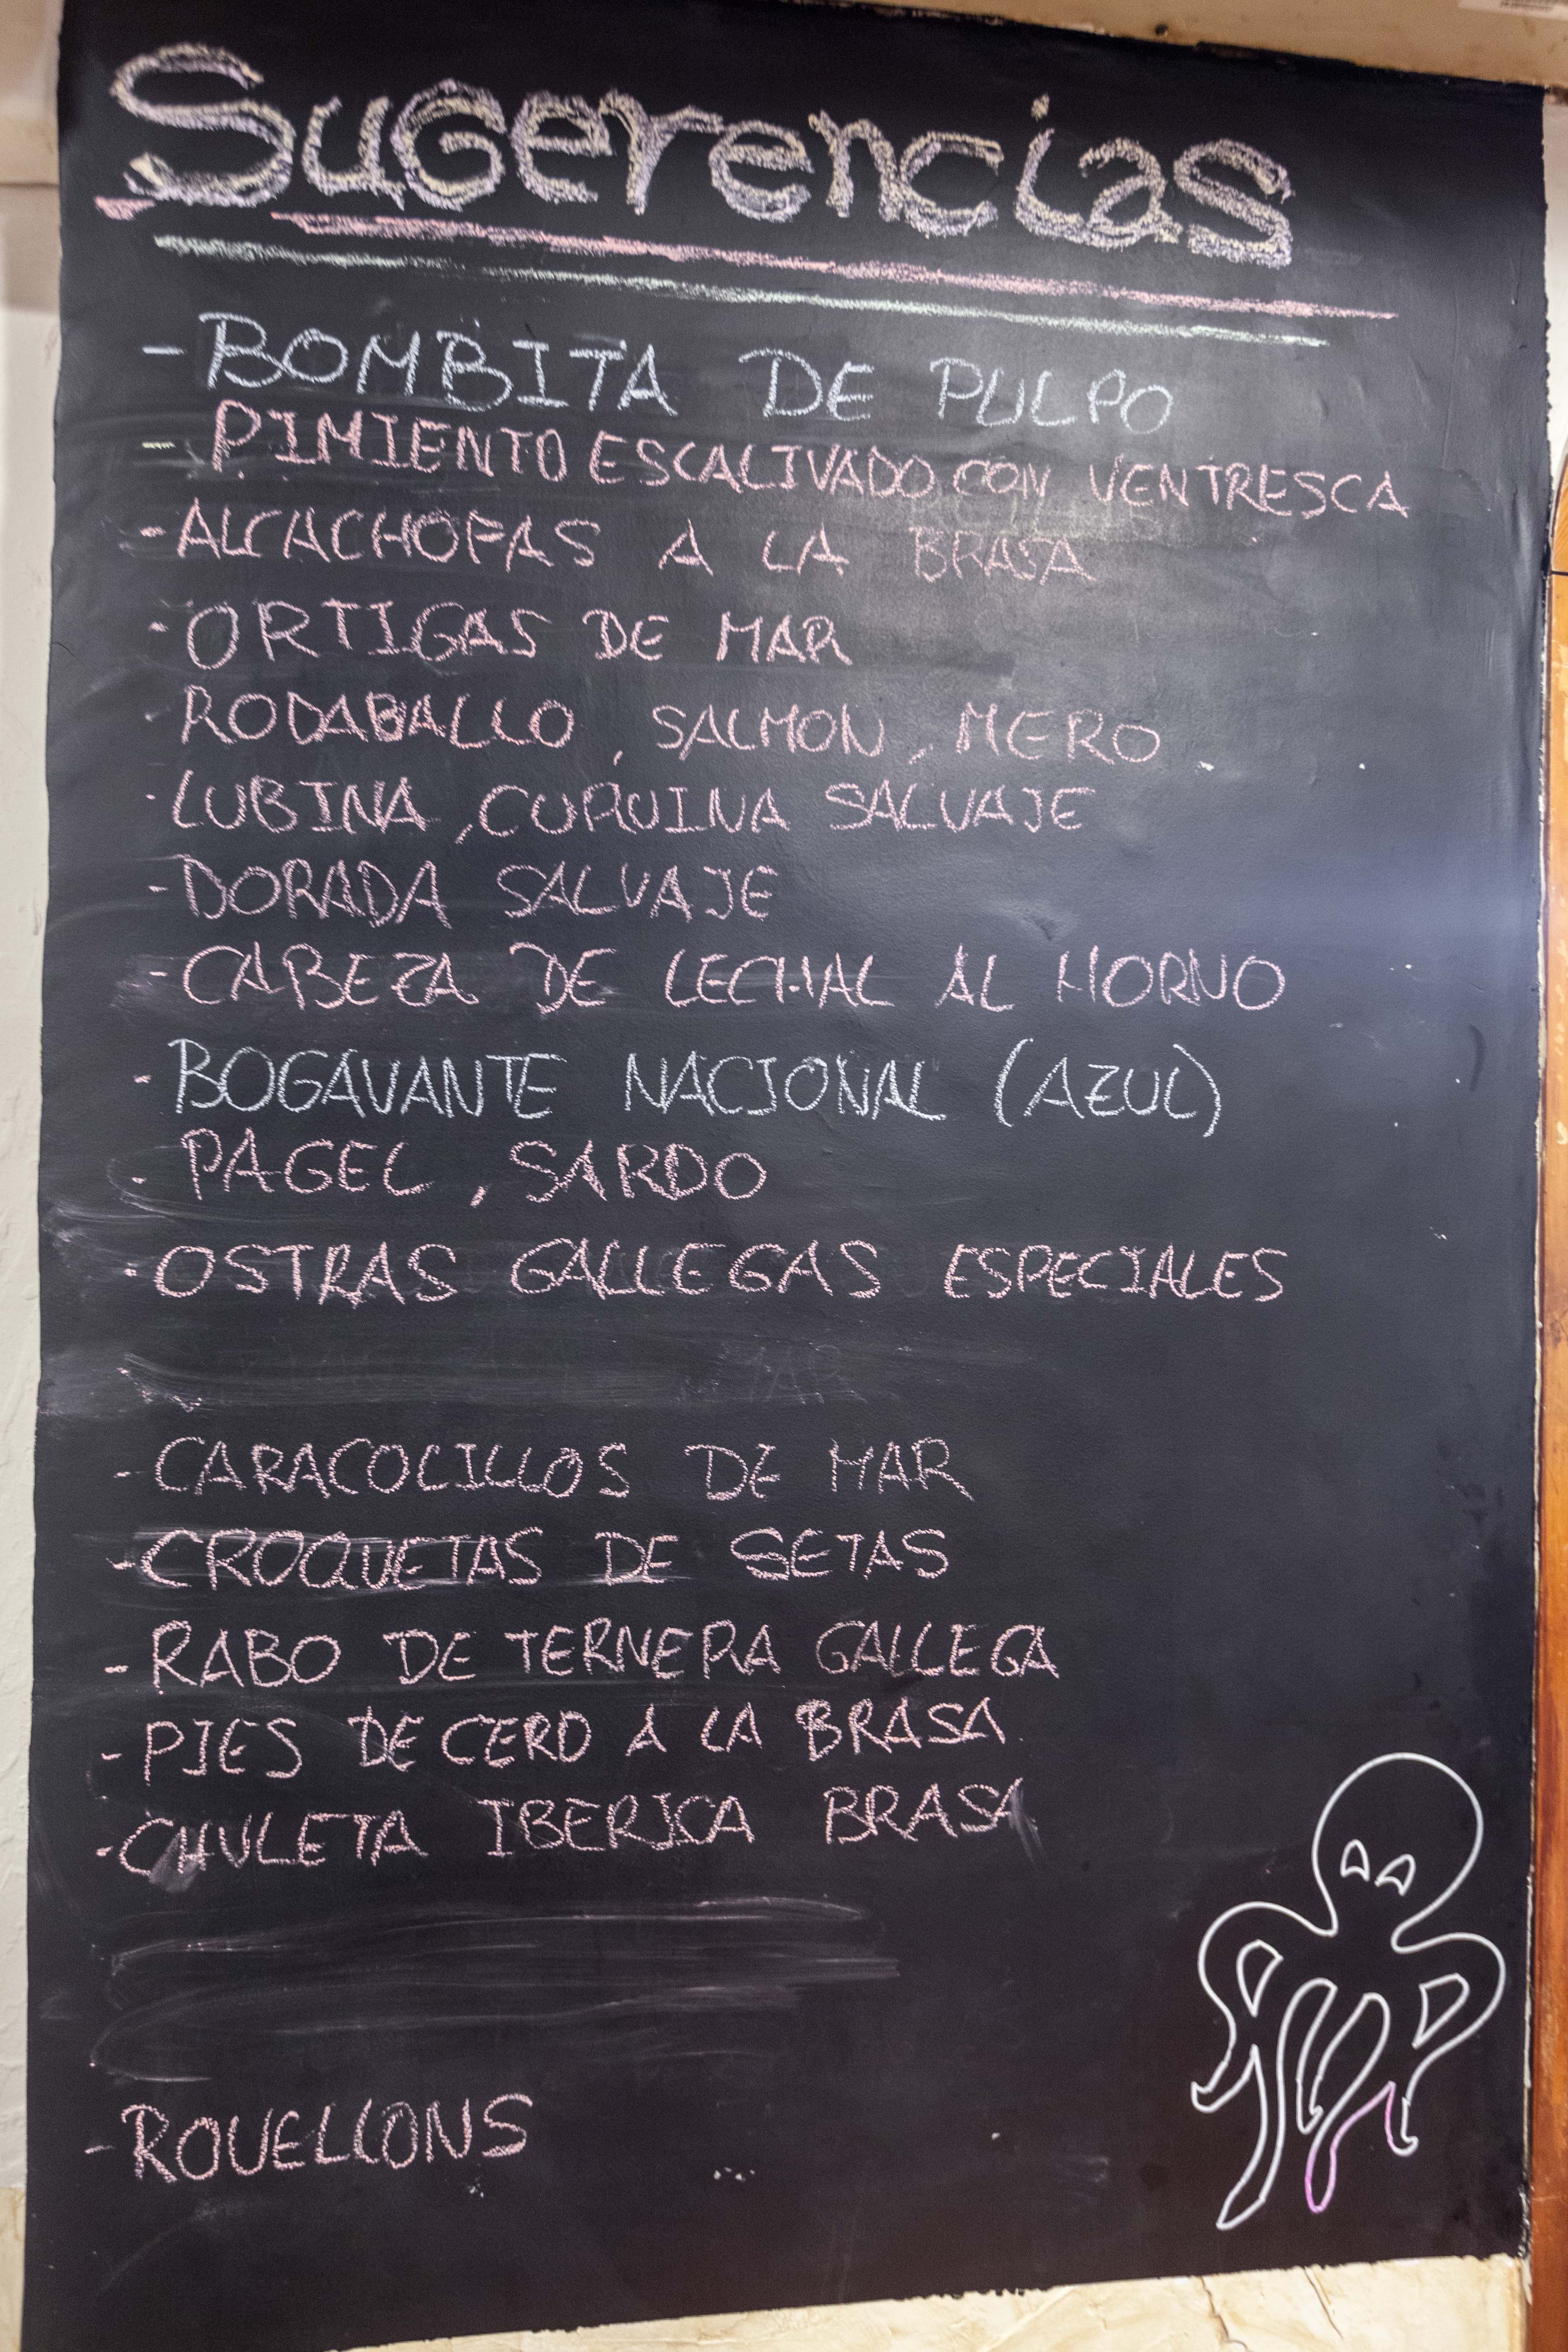 Sugerencias
- BOMBITA DE PULPO
- PIMIENTO ESCALIVADO CON VENTRESCA
- ALCACHOFAS A LA BRASA
- ORTIGAS DE MAR
- RODABALLO, SALMON, MERO
- LUBINA, CORUINA SALVAJE
- DORADA SALVAJE
- CABEZA DE LECHAL AL HORNO
- BOGAVANTE NACIONAL (AZUL)
- PAGEL, SARDO
- OSTRAS GALLEGAS ESPECIALES
MAR
- CARACOLILLOS DE MAR
- CROQUETAS DE SETAS
- RABO DE TERNERA GALLEGA
- PIES DE CERDO A LA BRASA
- CHULETA IBERICA BRASA
- ROVELLONS